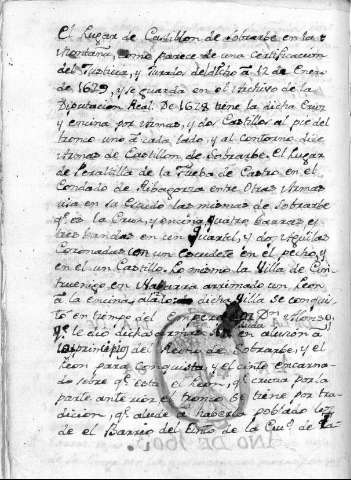 El Lugar de Castillon de Sobrarbe en las
Montañas, como parece de una certificacion
del Justicia, y Jurados del dicho a 12 de Enero
de 1629, y se guarda en el Archivo de la
Diputacion Real. De 1628 tiene la dicha Cruz
y encina por Armas, y dos Castillos al pie del
tronco uno a cada lado, y al contorno dice
Armas de Castillon de Sobrarbe. El Lugar
de Peralilla de la Fueba de Castro en el
Condado de Ribagorza entre otras Armas
usa en su Escudo las mismas de Sobrarbe
qe. es la Cruz, y encina, quatro barras, y
tres bandas en un Quartel, y dos Aguilas
Coronadas con un escudete en el pecho, y
en el un Castillo. Lo mismo la Villa de Cin-
truenigo, en Nabarra arrimado un Leon
a la encina, dicha Villa se conquis-
to en tiempo del Emperador Dn. Alonso,
qe. le dio dichas armas en alusion a
los principios del Reino de Sobrarbe, y el
Leon para Conquista, y el cinto encarna-
do sobre qe. esta el Leon, qe. cruza por la
parte anterior el tronco se tiene por tra-
dicion, qe. alude a haberla poblado los
de el Barrio del Cinto de la Ciud. de Ta-
AÑO DE 1601